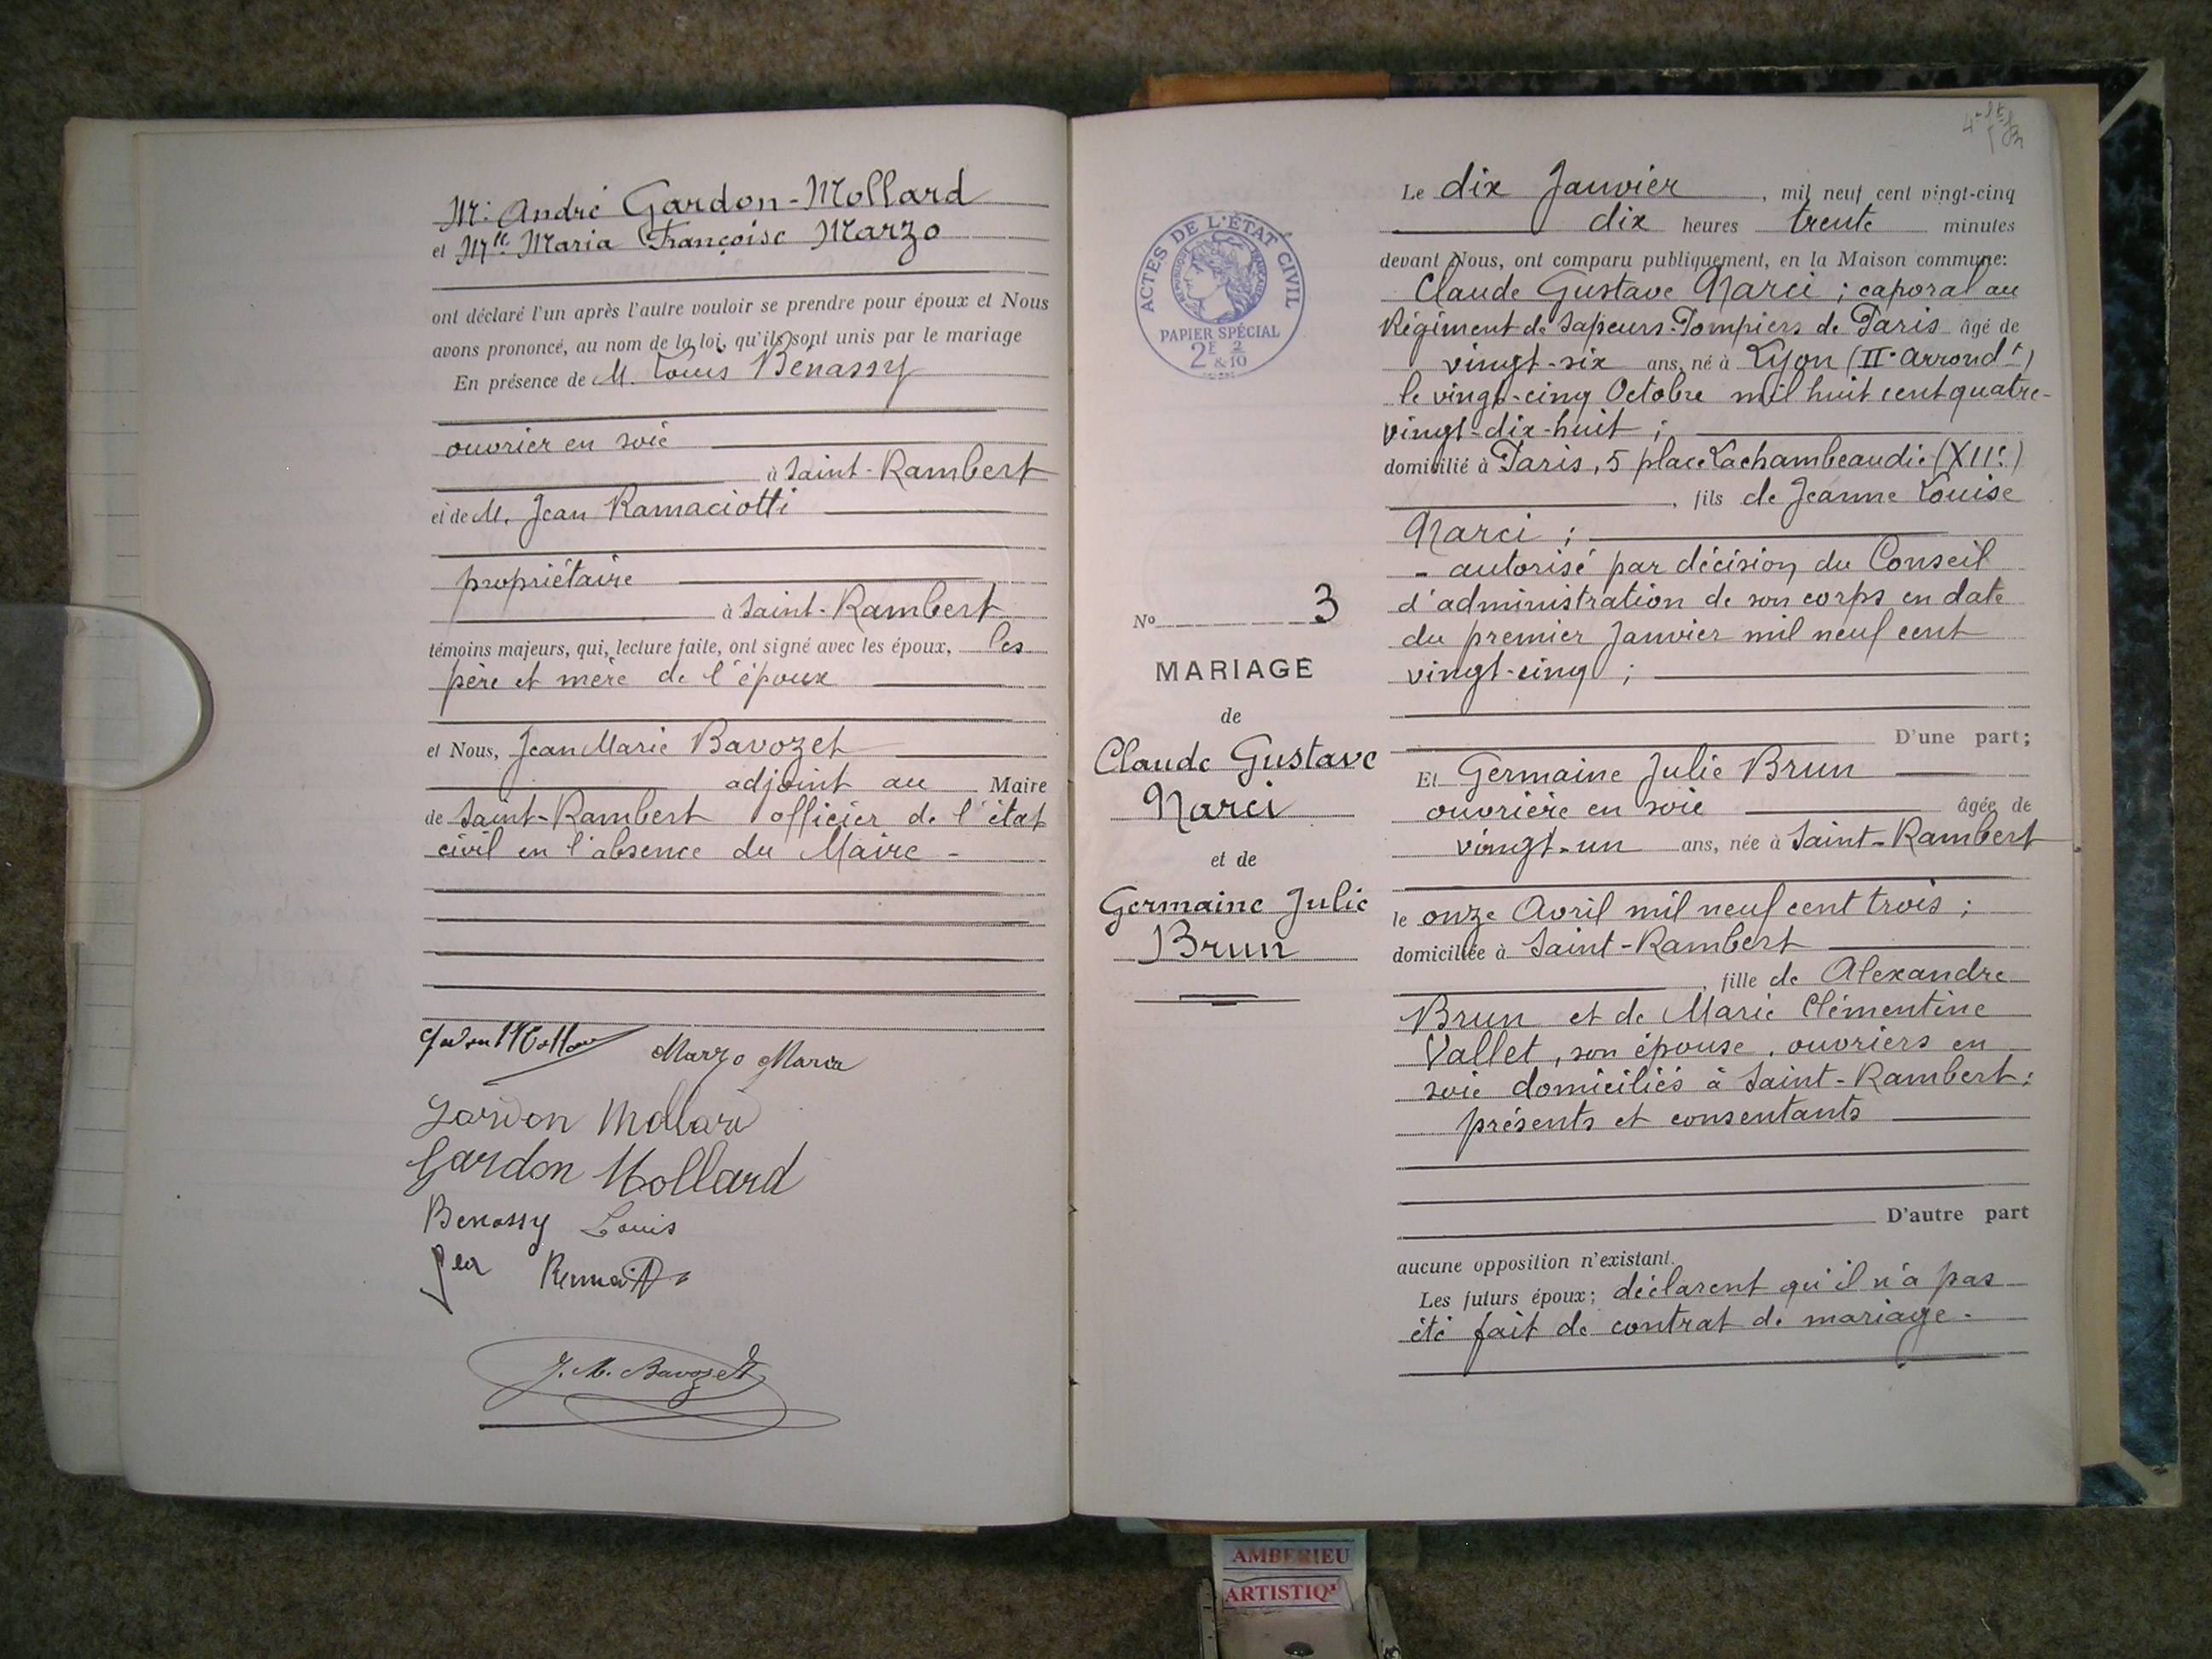 Mr. André Gardon-Mollard
et Mlle Maria Françoise Marzo
ont déclaré l'un après l'autre vouloir se prendre pour époux et Nous
avons prononcé, au nom de la loi, qu'ils sont unis par le mariage
En présence de M. Louis Benassy
ouvrier en soie
à Saint-Rambert
et de M. Jean Ramaciotti
propriétaire
à Saint-Rambert
témoins majeurs, qui, lecture faite, ont signé avec les époux, les
père et mère de l'époux
et Nous, Jean Marie Bavozet
adjoint au Maire
de Saint-Rambert officier de l'état
civil en l'absence du Maire -
Marzo Maria
Gardon Mollard
Gardon Mollard
Benassy Louis
J. M. Bavozet
ACTES DE L'ÉTAT CIVIL
RÉPUBLIQUE FRANÇAISE
PAPIER SPÉCIAL
2F 2
&10
No 3
MARIAGE
de
Claude Gustave
Narci
et de
Germaine Julie
Brun
Le dix Janvier, mil neuf cent vingt-cinq
dix heures trente minutes
devant Nous, ont comparu publiquement, en la Maison commune:
Claude Gustave Narci ; caporal au
Régiment de Sapeurs-Pompiers de Paris âgé de
vingt-six ans, né à Lyon (II. arrondt)
le vingt-cinq Octobre mil huit cent quatre-
vingt-dix-huit ;
domicilié à Paris, 5 place Lachambeaudie (XIIe)
, fils de Jeanne Louise
Narci ;
- autorisé par décision du Conseil
d'administration de son corps en date
du premier Janvier mil neuf cent
vingt-cinq ;
D'une part;
Et Germaine Julie Brun
ouvrière en soie âgée de
vingt-un ans, née à Saint-Rambert
le onze Avril mil neuf cent trois ;
domiciliée à Saint-Rambert
, fille de Alexandre
Brun et de Marie Clémentine
Vallet, son épouse, ouvriers en
soie domiciliés à Saint-Rambert;
présents et consentants
D'autre part
aucune opposition n'existant.
Les futurs époux; déclarent qu'il n'a pas
été fait de contrat de mariage.
AMBERIEU
ARTISTIQ